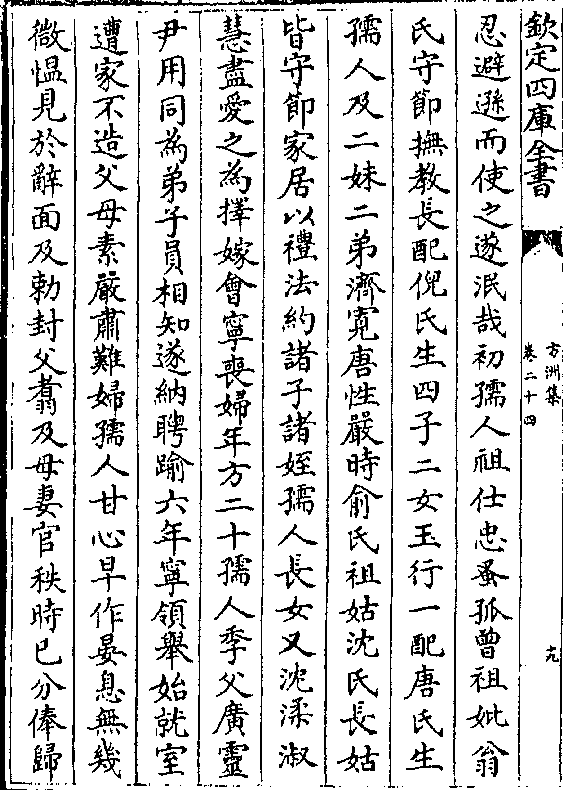 欽定四庫全書
方洲集
卷二十四
十九
忍避遜而使之遂泯哉初孺人祖仕忠蚤孤曾祖妣翁
氏守節撫教長配倪氏生四子二女玉行一配唐氏生
孺人及二妹二弟濟寛唐性嚴時俞氏祖姑沈氏長姑
皆守節家居以禮法約諸子諸姪孺人長女又沈潔淑
慧盡愛之為擇嫁會寧喪婦年方二十孺人季父廣靈
尹用同為弟子員相知遂納聘踰六年寧領舉始就室
遭家不造父母素嚴肅難婦孺人甘心早作晏息無幾
微愠見於辭面及勅封父翥及母妻官秩時已分俸歸